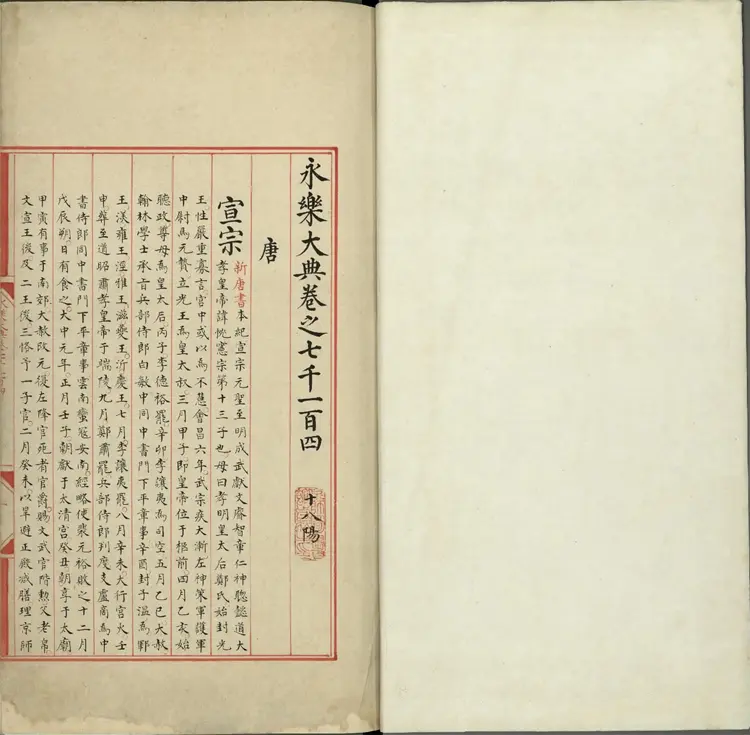 永樂大典卷之七千一百四 十八陽
唐
宣宗
新唐書本紀宣宗元聖至明成武獻文睿智章仁神聰懿道大
孝皇帝諱忱憲宗第十三子也母曰孝明皇太后鄭氏始封光
王性嚴重寡言宮中或以為不慧會昌六年武宗疾大漸左神策軍護軍
中尉馬元贄立光王爲皇太叔三月甲子即皇帝位于柩前四月乙亥始
聽政尊母爲皇太后丙子李德裕罷辛卯李讓夷爲司空五月乙巳大赦
翰林學士承旨兵部侍郎白敏中同中書門下平章事辛酉封子溫爲鄆
王渼雍王涇雅王滋夔王沂慶王七月李讓夷罷八月辛未大行宮火壬
申葬至道昭肅孝皇帝于端陵九月鄭肅罷兵部侍郎判度支盧商爲中
書侍郎同中書門下平章事雲南蠻寇安南經略使裴元裕敗之十二月
戊辰朔日有食之大中元年正月壬子朝獻于太清宮癸丑朝享于太廟
甲寅有事于南郊大赦改元復左降官死者官爵賜文武官階勳父老帛
文宣王後及二王後三恪予一子官二月癸未以旱避正殿減膳理京師